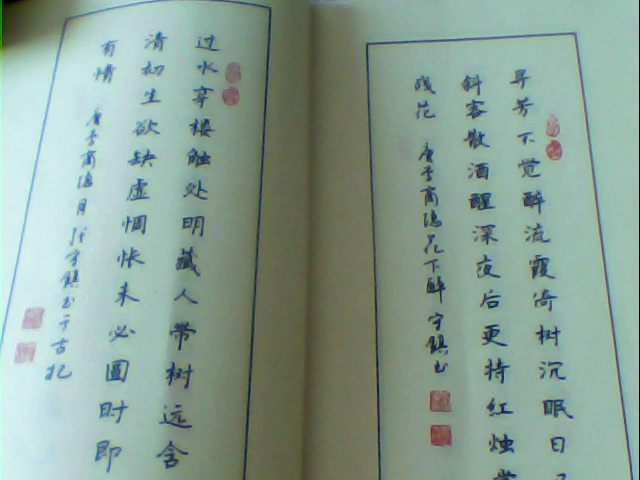 寻芳不觉醉流霞倚树沉眠日
斜客散酒醒深夜后更持红烛
残花 唐李商隐花下醉 守镇书
过水穿楼触处明藏人带树远含
清初生欲缺虚惆怅未必圆时即
有情 唐李商隐月 张守镇书于古杞